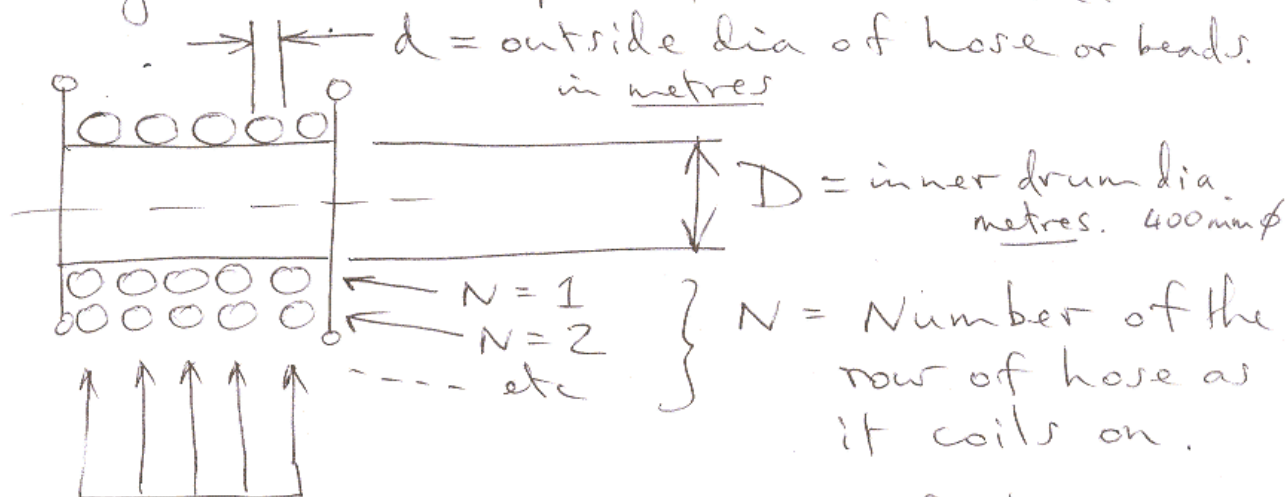 d = outside dia of hose or beads.
in metres
D = inner drum dia.
metres. 400mmϕ
N = 1
N = 2
---- etc
N = Number of the
row of hose as
it coils on.